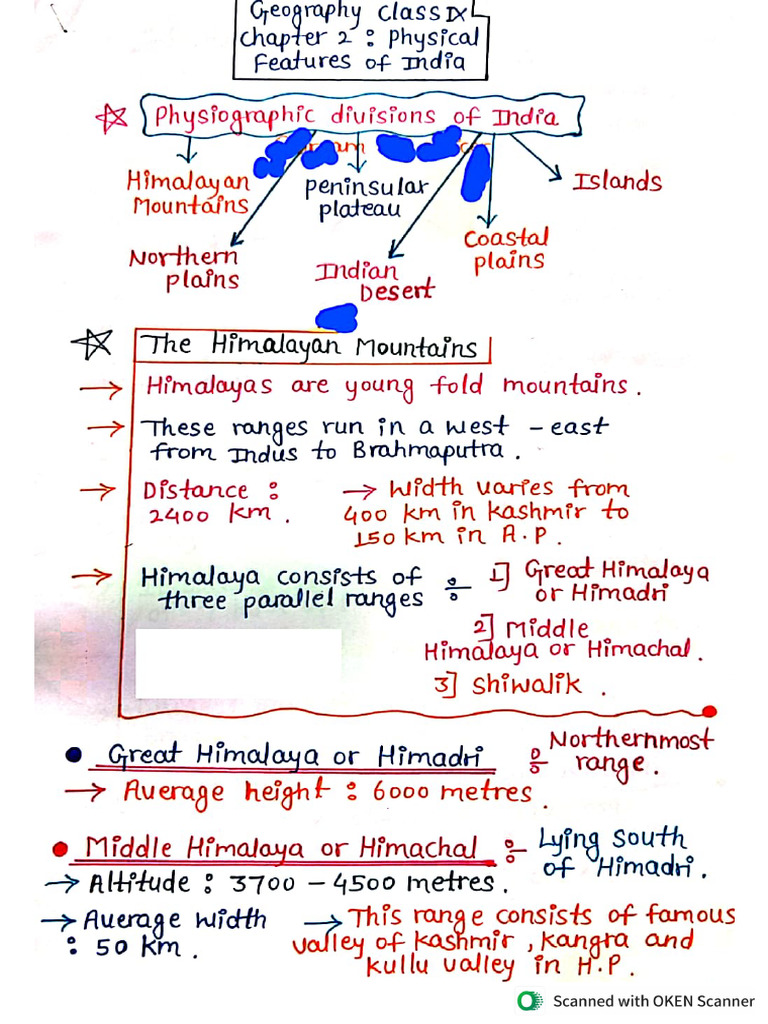 Geography Class IX
Chapter 2 : Physical
Features of India
Physiographic divisions of India
Himalayan
Mountains
Peninsular
plateau
Islands
Northern
plains
Indian
Desert
Coastal
plains
The Himalayan Mountains
→ Himalayas are young fold mountains.
→ These ranges run in a west - east
from Indus to Brahmaputra.
→ Distance :
2400 km.
→ Width varies from
400 km in Kashmir to
150 km in A.P.
→ Himalaya consists of
three parallel ranges
1] Great Himalaya
or Himadri
2] Middle
Himalaya or Himachal.
3] Shiwalik.
• Great Himalaya or Himadri
Northernmost
range.
→ Average height : 6000 metres.
• Middle Himalaya or Himachal
Lying South
of Himadri.
→ Altitude : 3700 - 4500 metres.
→ Average width
: 50 km.
→ This range consists of famous
valley of Kashmir, Kangra and
Kullu valley in H.P.
Scanned with OKEN Scanner